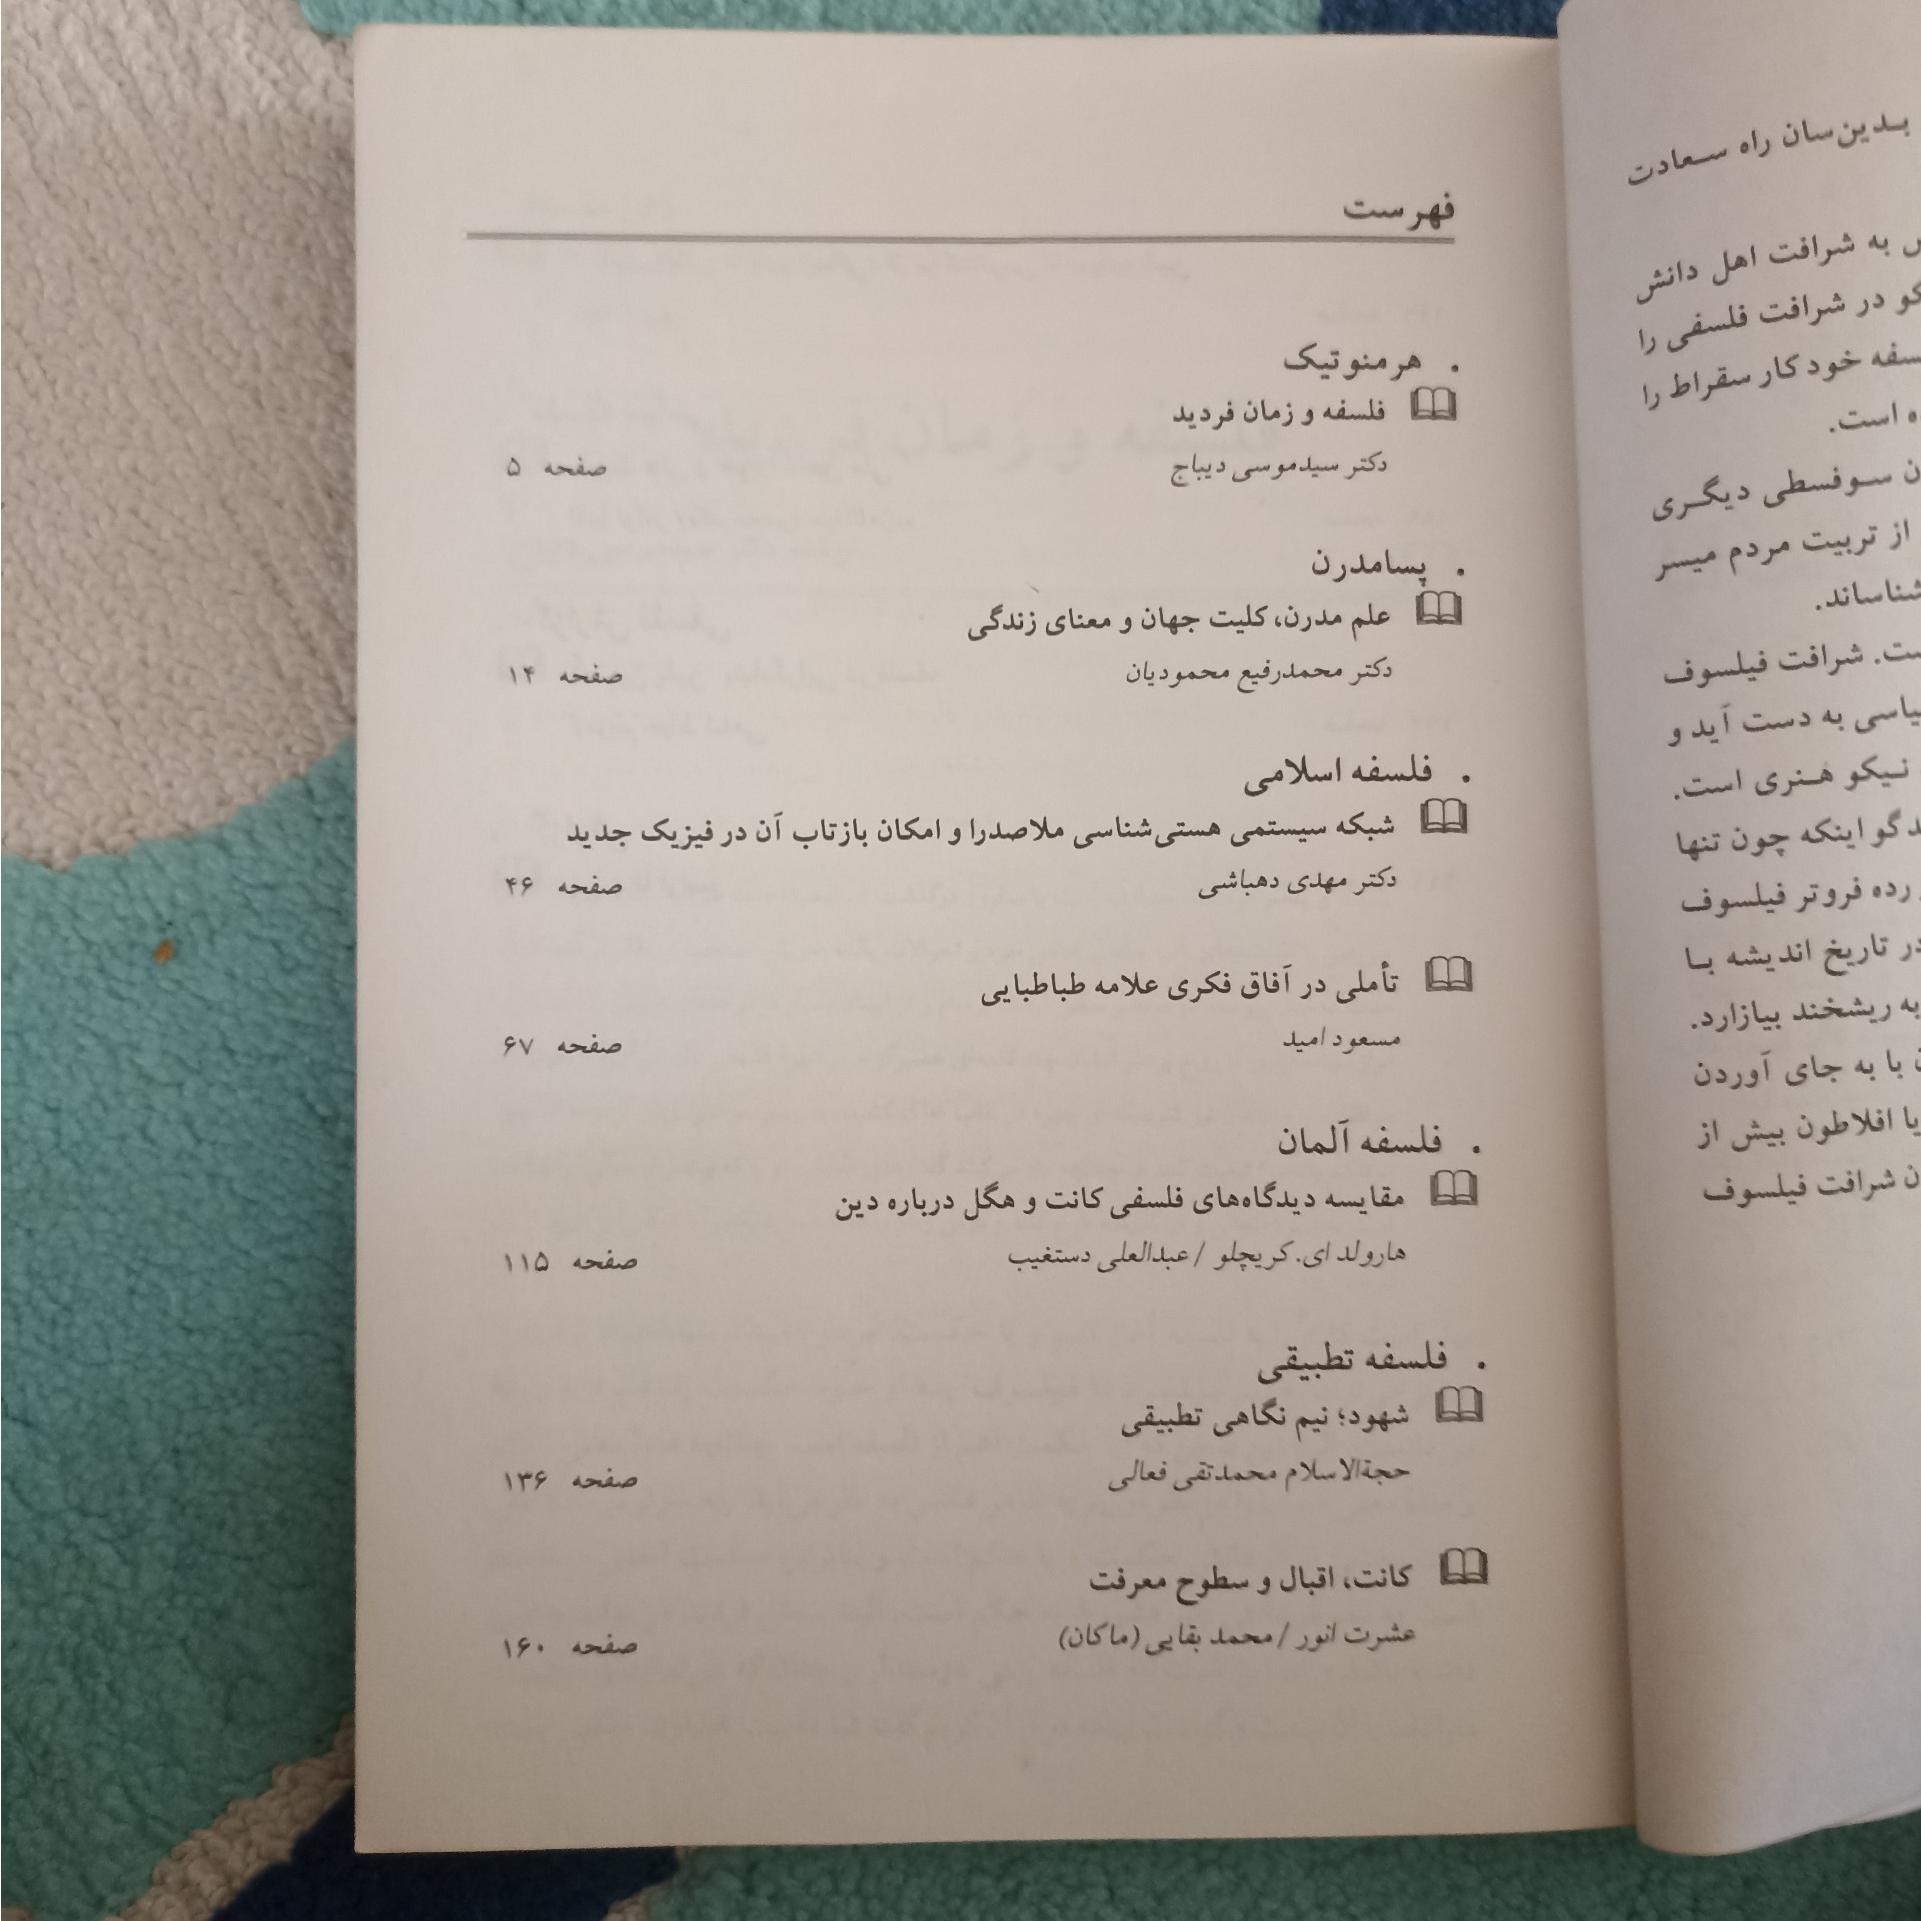 فهرست
. هرمنوتیک
فلسفه و زمان فردید
دکتر سیدموسی دیباج صفحه ۵
. پسامدرن
علم مدرن، کلیت جهان و معنای زندگی
دکتر محمدرفیع محمودیان صفحه ۱۴
. فلسفه اسلامی
شبکه سیستمی هستی‌شناسی ملاصدرا و امکان بازتاب آن در فیزیک جدید
دکتر مهدی دهباشی صفحه ۴۶
تأملی در آفاق فکری علامه طباطبایی
مسعود امید صفحه ۶۷
. فلسفه آلمان
مقایسه دیدگاه‌های فلسفی کانت و هگل درباره دین
هارولد ای. کریچلو / عبدالعلی دستغیب صفحه ۱۱۵
. فلسفه تطبیقی
شهود؛ نیم نگاهی تطبیقی
حجةالاسلام محمدتقی فعالی صفحه ۱۳۶
کانت، اقبال و سطوح معرفت
عشرت انور / محمد بقایی (ماکان) صفحه ۱۶۰
بدین‌سان راه سعادت
به شرافت اهل دانش
در شرافت فلسفی را
خود کار سقراط را
است.
سوفسطی دیگری
از تربیت مردم میسر
شناساند.
شرافت فیلسوف
به دست آید و
نیکو هنری است.
گو اینکه چون تنها
رده فروتر فیلسوف
در تاریخ اندیشه با
به ریشخند بیازارد.
با به جای آوردن
یا افلاطون بیش از
شرافت فیلسوف